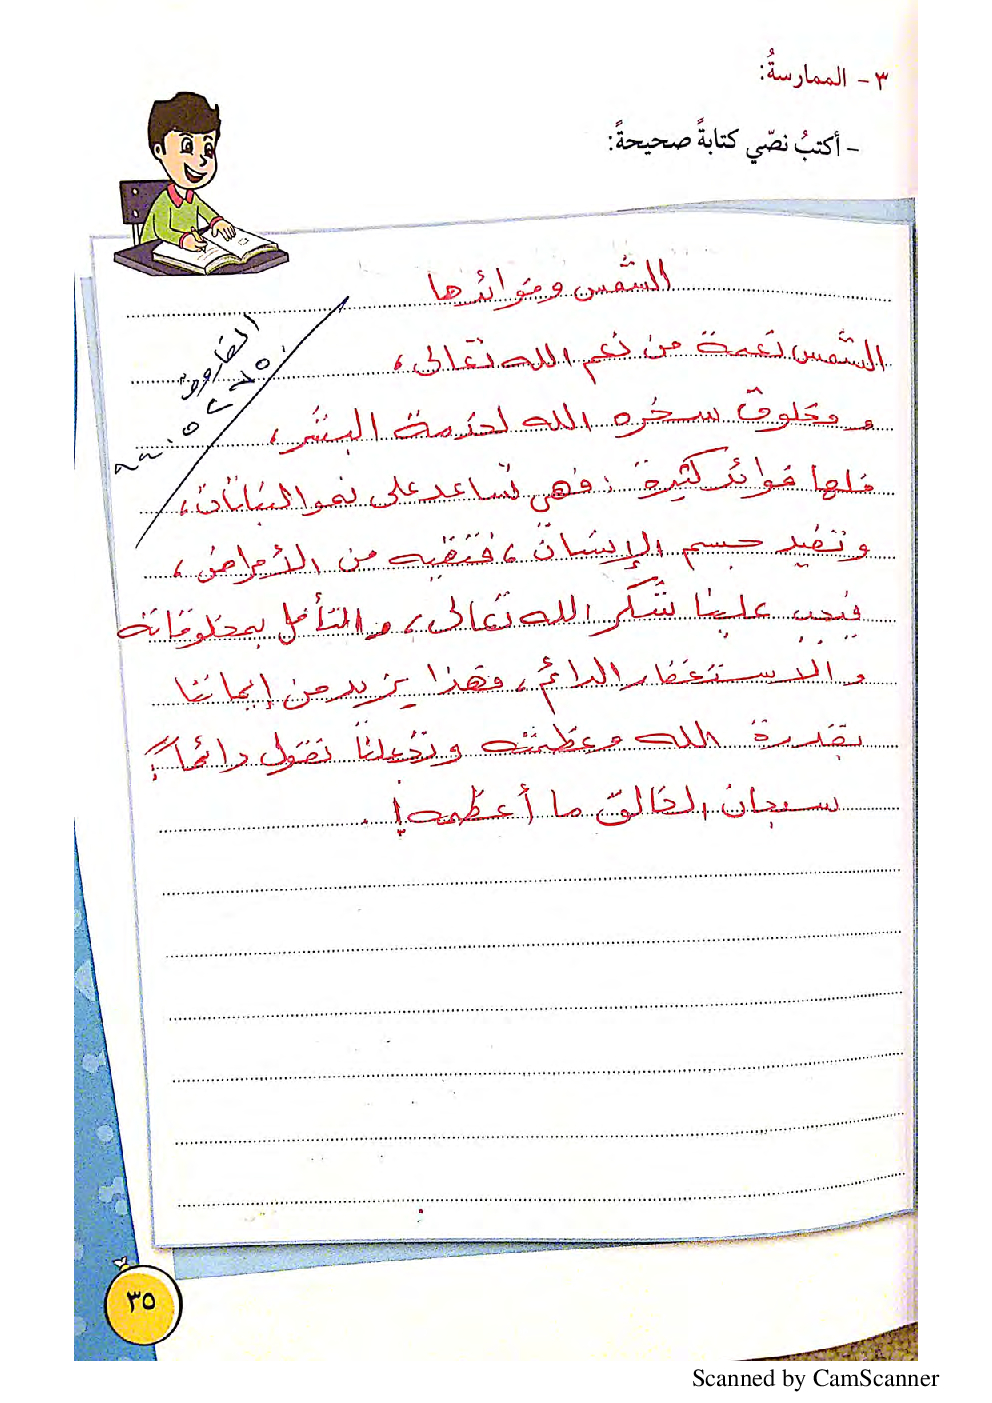 ٣ - الممارسةُ:
- أكتبُ نصّي كتابةً صحيحةً:
الشمس وفوائدها
الشمس نعمة من نعم الله تعالى،
ومخلوق سخره الله لخدمة البشر،
فلها فوائد كثيرة: فهي تساعد على نمو النباتات،
وتفيد جسم الإنسان، فتقيه من الأمراض،
فيجب علينا شكر الله تعالى، والتأمل بمخلوقاته
والاستغفار الدائم، وهذا يزيد من إيماننا
بقدرة الله وعظمته وتجعلنا نقول دائماً:
سبحان الخالق ما أعظمه!.
٣٥
Scanned by CamScanner